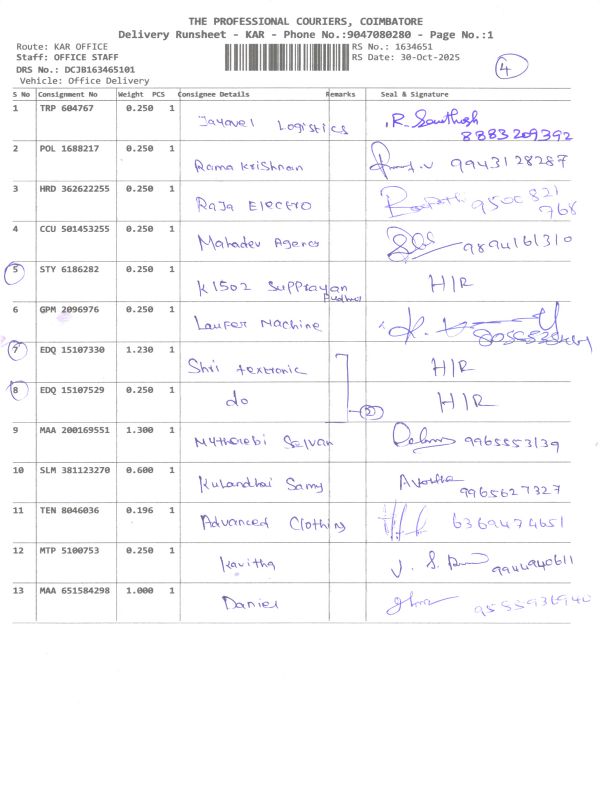 THE PROFESSIONAL COURIERS, COIMBATORE
Delivery Runsheet - KAR - Phone No.:9047080280 - Page No.:1
Route: KAR OFFICE RS No.: 1634651
Staff: OFFICE STAFF RS Date: 30-Oct-2025
DRS No.: DCJB163465101 4
Vehicle: Office Delivery
S No Consignment No Weight PCS Consignee Details Remarks Seal & Signature
1 TRP 604767 0.250 1 Jayavel Logistics R. Santhosh
8883209392
2 POL 1688217 0.250 1 Rama Krishnan 9943128287
3 HRD 362622255 0.250 1 Raja Electro 9500821
768
4 CCU 501453255 0.250 1 Mahadev Agency 9894161310
5 STY 6186282 0.250 1 K1502 Supprayan H/R
Pudhur
6 GPM 2096976 0.250 1 Laufer Machine
7 EDQ 15107330 1.230 1 Shri textronic H/R
8 EDQ 15107529 0.250 1 do H/R
2
9 MAA 200169551 1.300 1 Selvan 9965553139
10 SLM 381123270 0.600 1 Kulandhai Samy
9965627327
11 TEN 8046036 0.196 1 Advanced Clothing 6369474651
12 MTP 5100753 0.250 1 Kavitha 9944940611
13 MAA 651584298 1.000 1 Daniel 9555936940